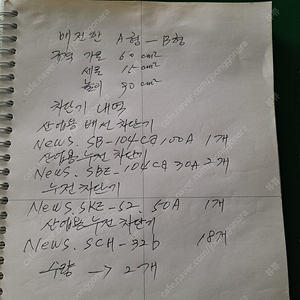 배전판 A형-B형
규격 가로 60cm²
세로 15cm²
높이 90cm²
차단기 내역
산업용 배선차단기
News. SB-104CB 100A 1개
산업용 누전차단기
News. SBE-104CB 30A 2개
누전차단기
News. SKE-52. 50A 1개
산업용 누전차단기
News. SCH-32b 18개
수량 → 2개